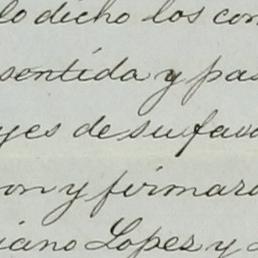 lo dicho los con
sentida y pas
yes de su favo
on y firmaro
iano Lopez y